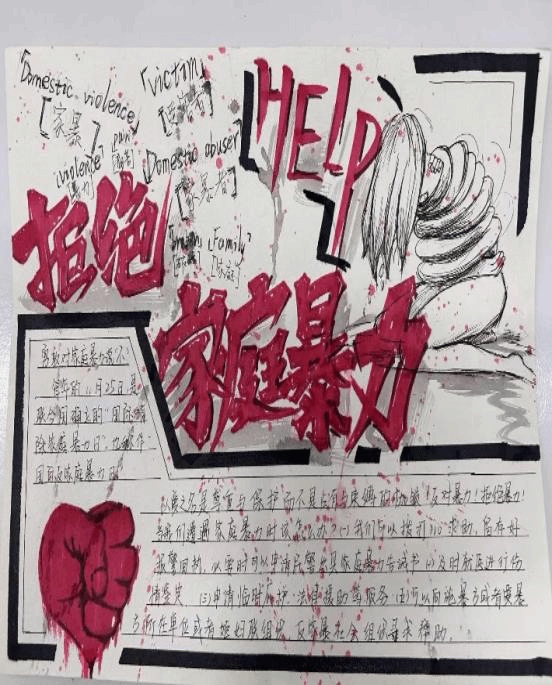 「Domestic violence」
[家暴]
「victim」
「violence」
[暴力]
pain
Domestic abuser
[家暴者]
Family
HELP
拒绝
家庭暴力
勇敢对家庭暴力说“不”
每年的11月25日是
联合国确立的“国际消
除家庭暴力日”,也被作
国际反家庭暴力日
以爱之名是尊重与保护而不是占有与束缚的枷锁!反对暴力!拒绝暴力!
当我们遭遇家庭暴力时该怎么办?(1)我们可以拨打110求助,保存好
报警回执,必要时可以申请民警出具家庭暴力告诫书(2)及时就医进行伤
情鉴定 (3)申请临时庇护、法律援助等服务 (4)可以向施暴方或者受暴
方所在单位或者妇联组织、反家暴社会组织寻求帮助。